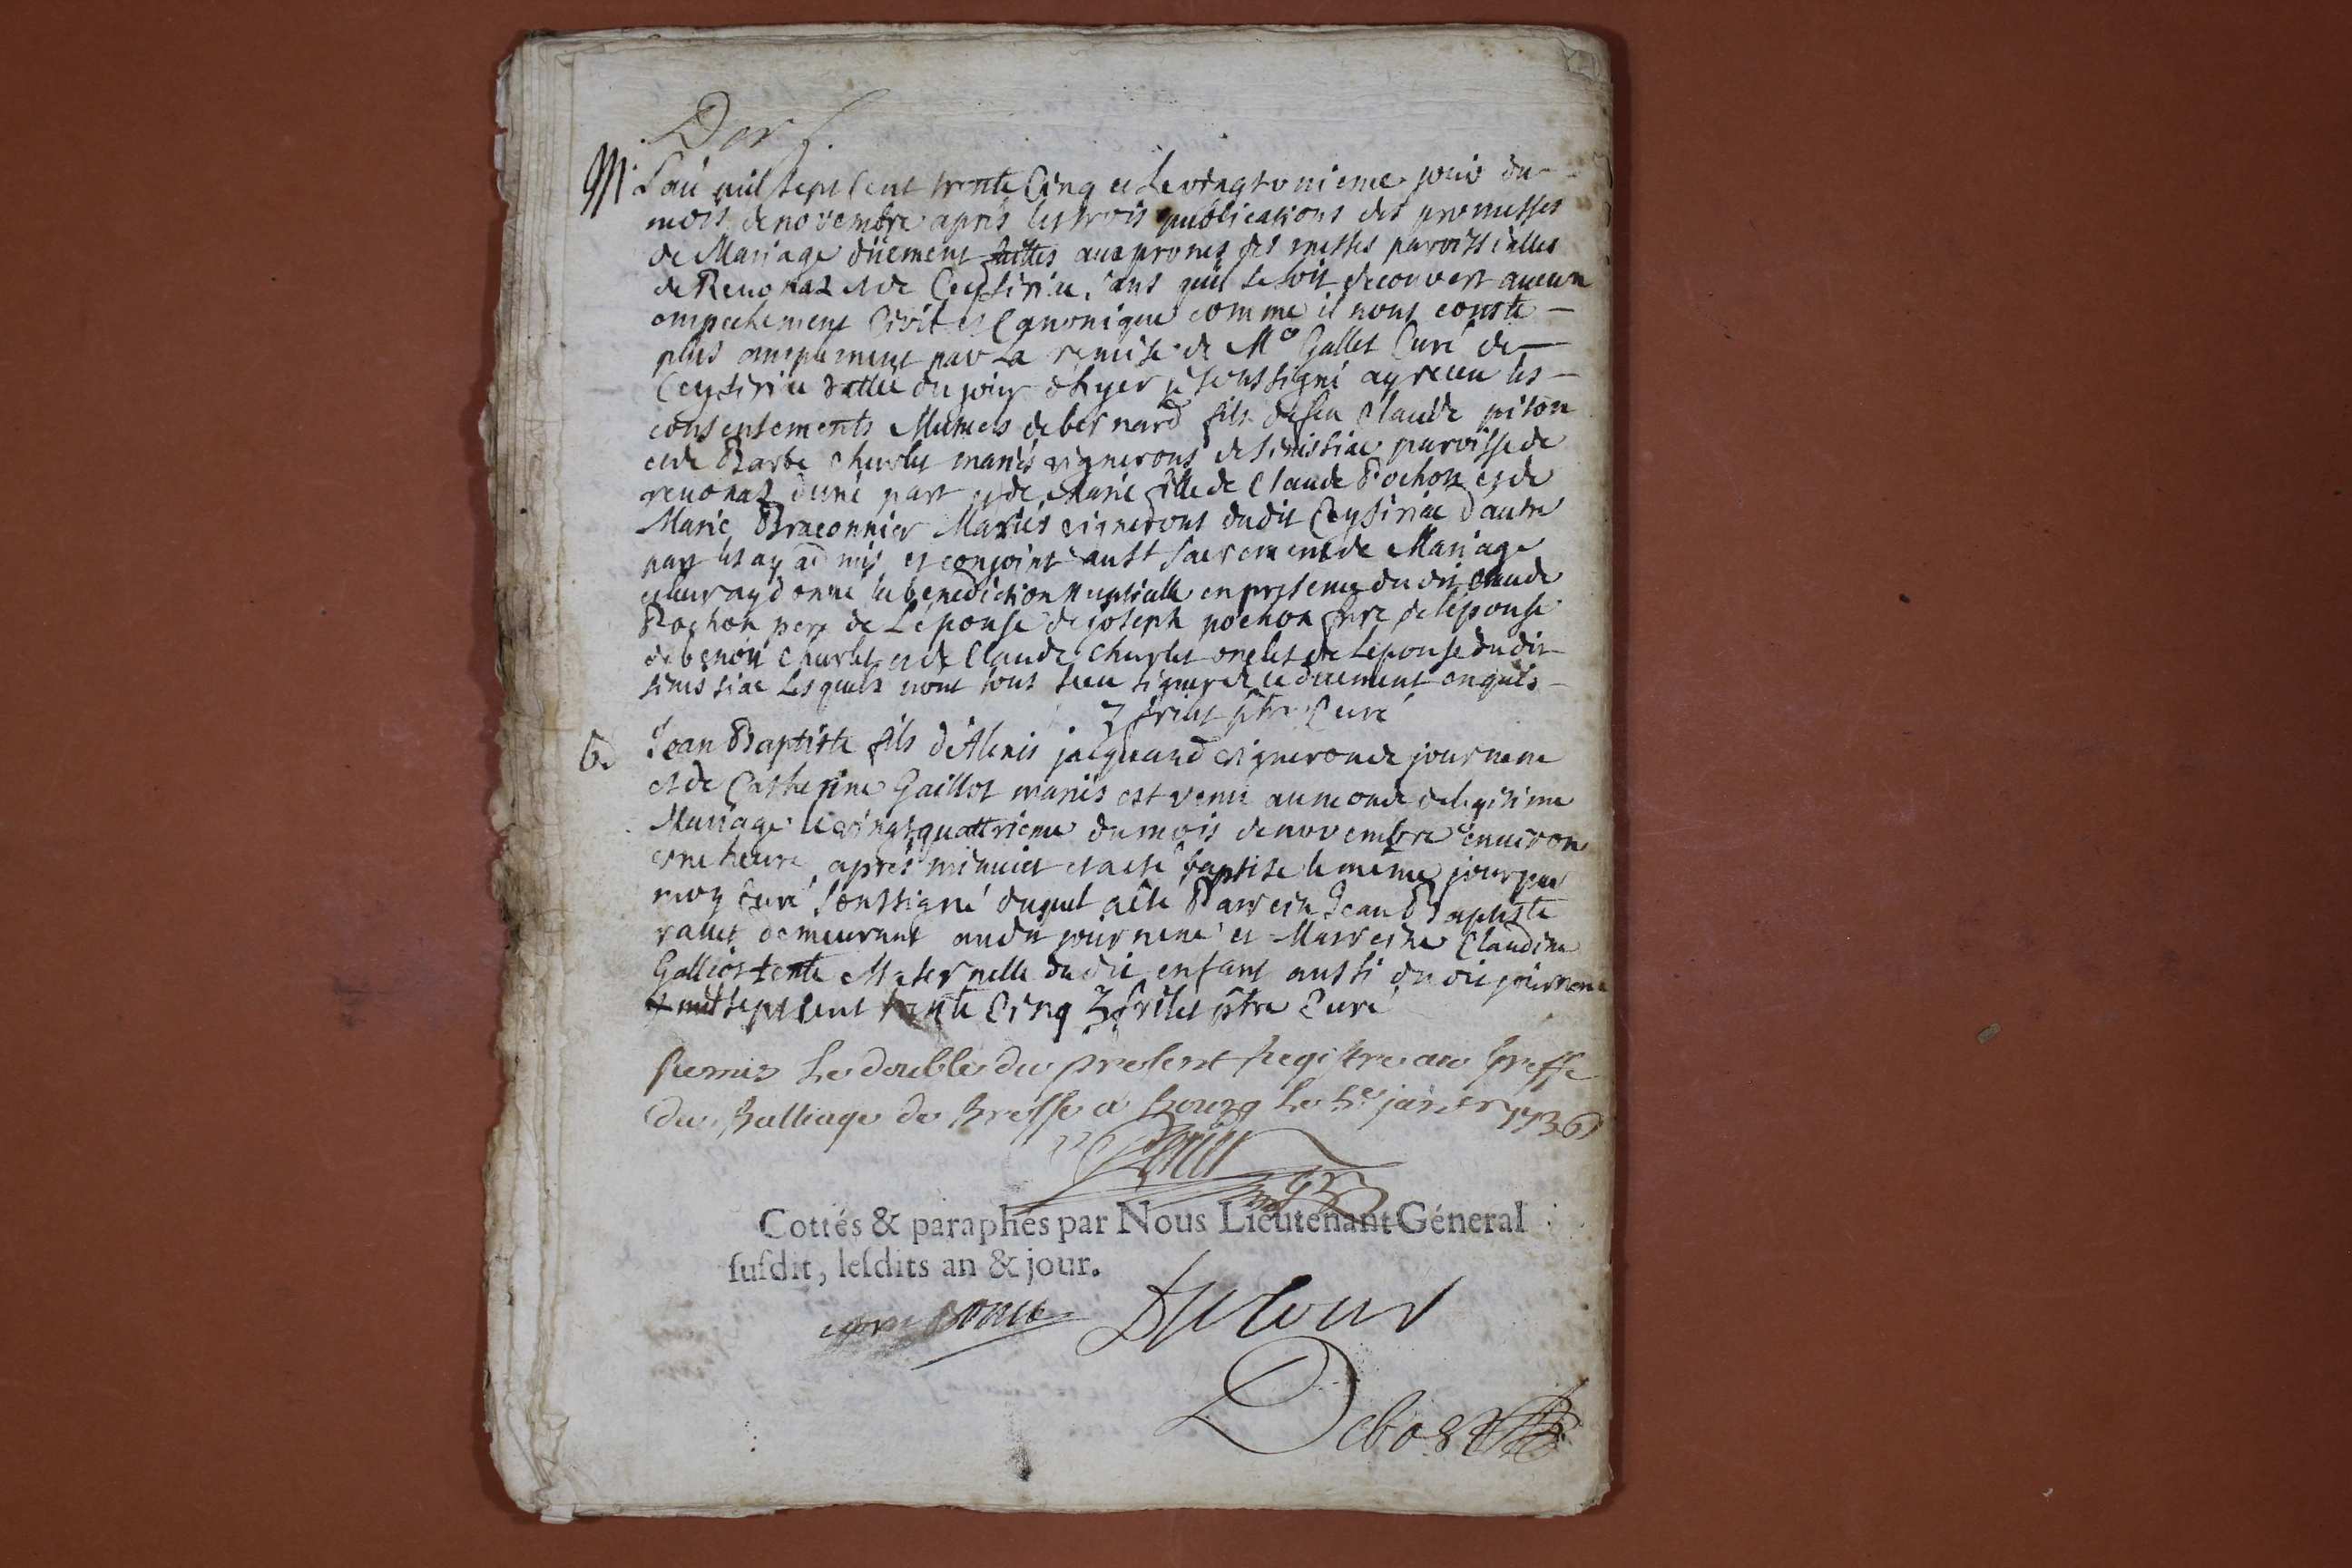 Der f.
M. L'an mil sept cent trente Cinq et le vingtunieme jour du
mois de novembre aprés les trois publications des promesses
de Mariage düement faittes aux prones des messes paroissialles
de Reuonaz et de Ceyseriat, sans quil se soit decouvert aucun
empechement Civil et Canonique comme il nous conste
plus amplement par La remise de Mo Gallet Curé de
Ceyseriat dattée du jour d'hyer je soussigné ay receu les
consentements Mutuels de bernard fils de feu Claude piton
et de Barbe Charlet mariés vignerons de simissiac paroisse de
reuonaz dune part et de Marie fille de Claude Pochon et de
Marie Braconnier Mariés vignerons dudit Ceyseriat dautre
part les ay admis et conjoint au St Sacrement de Mariage
et leur ay donné la benediction Nuptialle en presence du dit Claude
Pochon pere de L'epouse de joseph pochon frere de l'epouse
de benoit Charlet et de Claude Charlet oncles de Lepouse du dit
simissiac Lesquels nont tous sceu signer de ce deuement enquis
ptre Curé
B. Jean Baptiste fils d'Alexis jacquand vigneron de journene
et de Catherine Gaillot mariés est venu au monde de legitime
Mariage le vingtquattrieme du mois de novembre environ
une heure aprés minuict et a esté baptisé le même jour par
moy Curé soussigné duquel a été Parrein Jean Baptiste
ravet demeurant audit journene et Marreine Claudine
Galliot tente Maternelle du dit enfant aussi du dit journene
mil sept cent trente Cinq ptre Curé
Remis Le double du present Registre au Greffe
du Balliage de Bresse a bourg le janvier 1736
Cottés & paraphés par Nous Lieutenant Géneral
susdit, lesdits an & jour.
Dutour
Debost